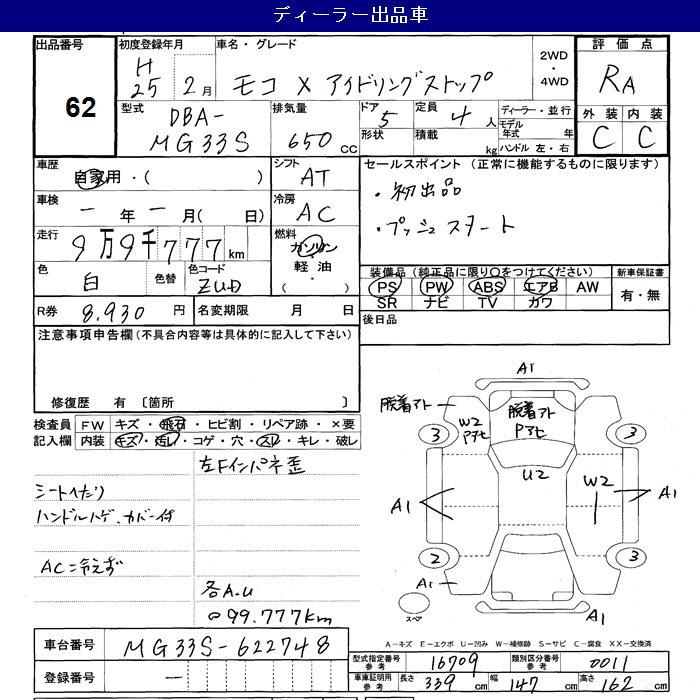 ディーラー出品車
出品番号
62
初度登録年月
H
25 2月
車名・グレード
モコ X アイドリングストップ
2WD
・
4WD
評価点
RA
型式
DBA-
MG33S
排気量
650 cc
ドア
5
形状
定員
4 人
積載
kg
ディーラー・並行
モデル
年式 年
ハンドル 左・右
外装 内装
C C
車歴
自家用・( )
シフト
AT
セールスポイント (正常に機能するものに限ります)
・初出品
・プッシュスタート
車検
ー年ー月( 日)
冷房
AC
走行
9万9千777km
燃料
ガソリン
・
軽油
・
( )
色
白
色替
色コード
ZUD
装備品 (純正品に限り○をつけてください)
PS PW ABS エアB AW
SR ナビ TV カワ
新車保証書
有・無
R券 8,930 円
名変期限 月 日
後日品
注意事項申告欄 (不具合内容等は具体的に記入して下さい)
修復歴 有 〔箇所 〕
検査員
記入欄
FW キズ・飛石・ヒビ割・リペア跡・×要
内装 キズ・汚レ・コゲ・穴・スレ・キレ・破レ
左Fインパネ歪
シートヘタリ
ハンドルハゲ、カバー付
AC=冷えず
各A.U
99.777km
A1
脱着アト
脱着アト
Pアセ
W2
Pアセ
3
3
U2
W2
A1
A1
2
3
A1
A1
スペア
A-キズ E-エクボ U-凹み W-補修跡 S-サビ C-腐食 XX-交換済
車台番号
MG33S-622748
登録番号
ー
型式指定番号
参考
16709
類別区分番号
参考
0011
車庫証明用
参考
長さ
339 cm
幅
147 cm
高さ
162 cm